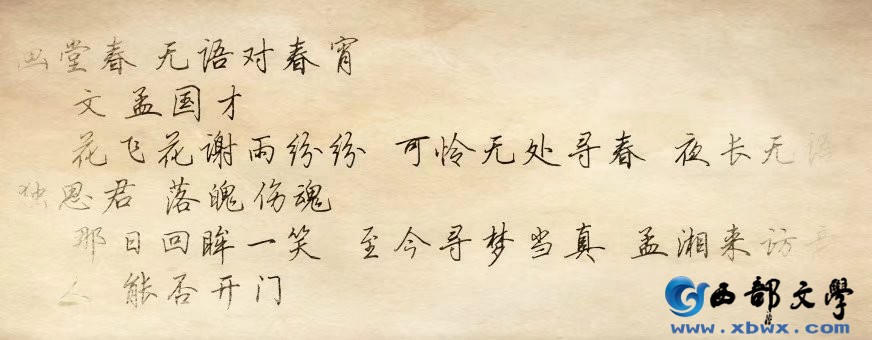 画堂春 无语对春宵
文 孟国才
花飞花谢雨纷纷 可怜无处寻春 夜长无语
独思君 落魄伤魂
那日回眸一笑 至今寻梦当真 孟湘来访
人 能否开门
西部文學
www.xbwx.com